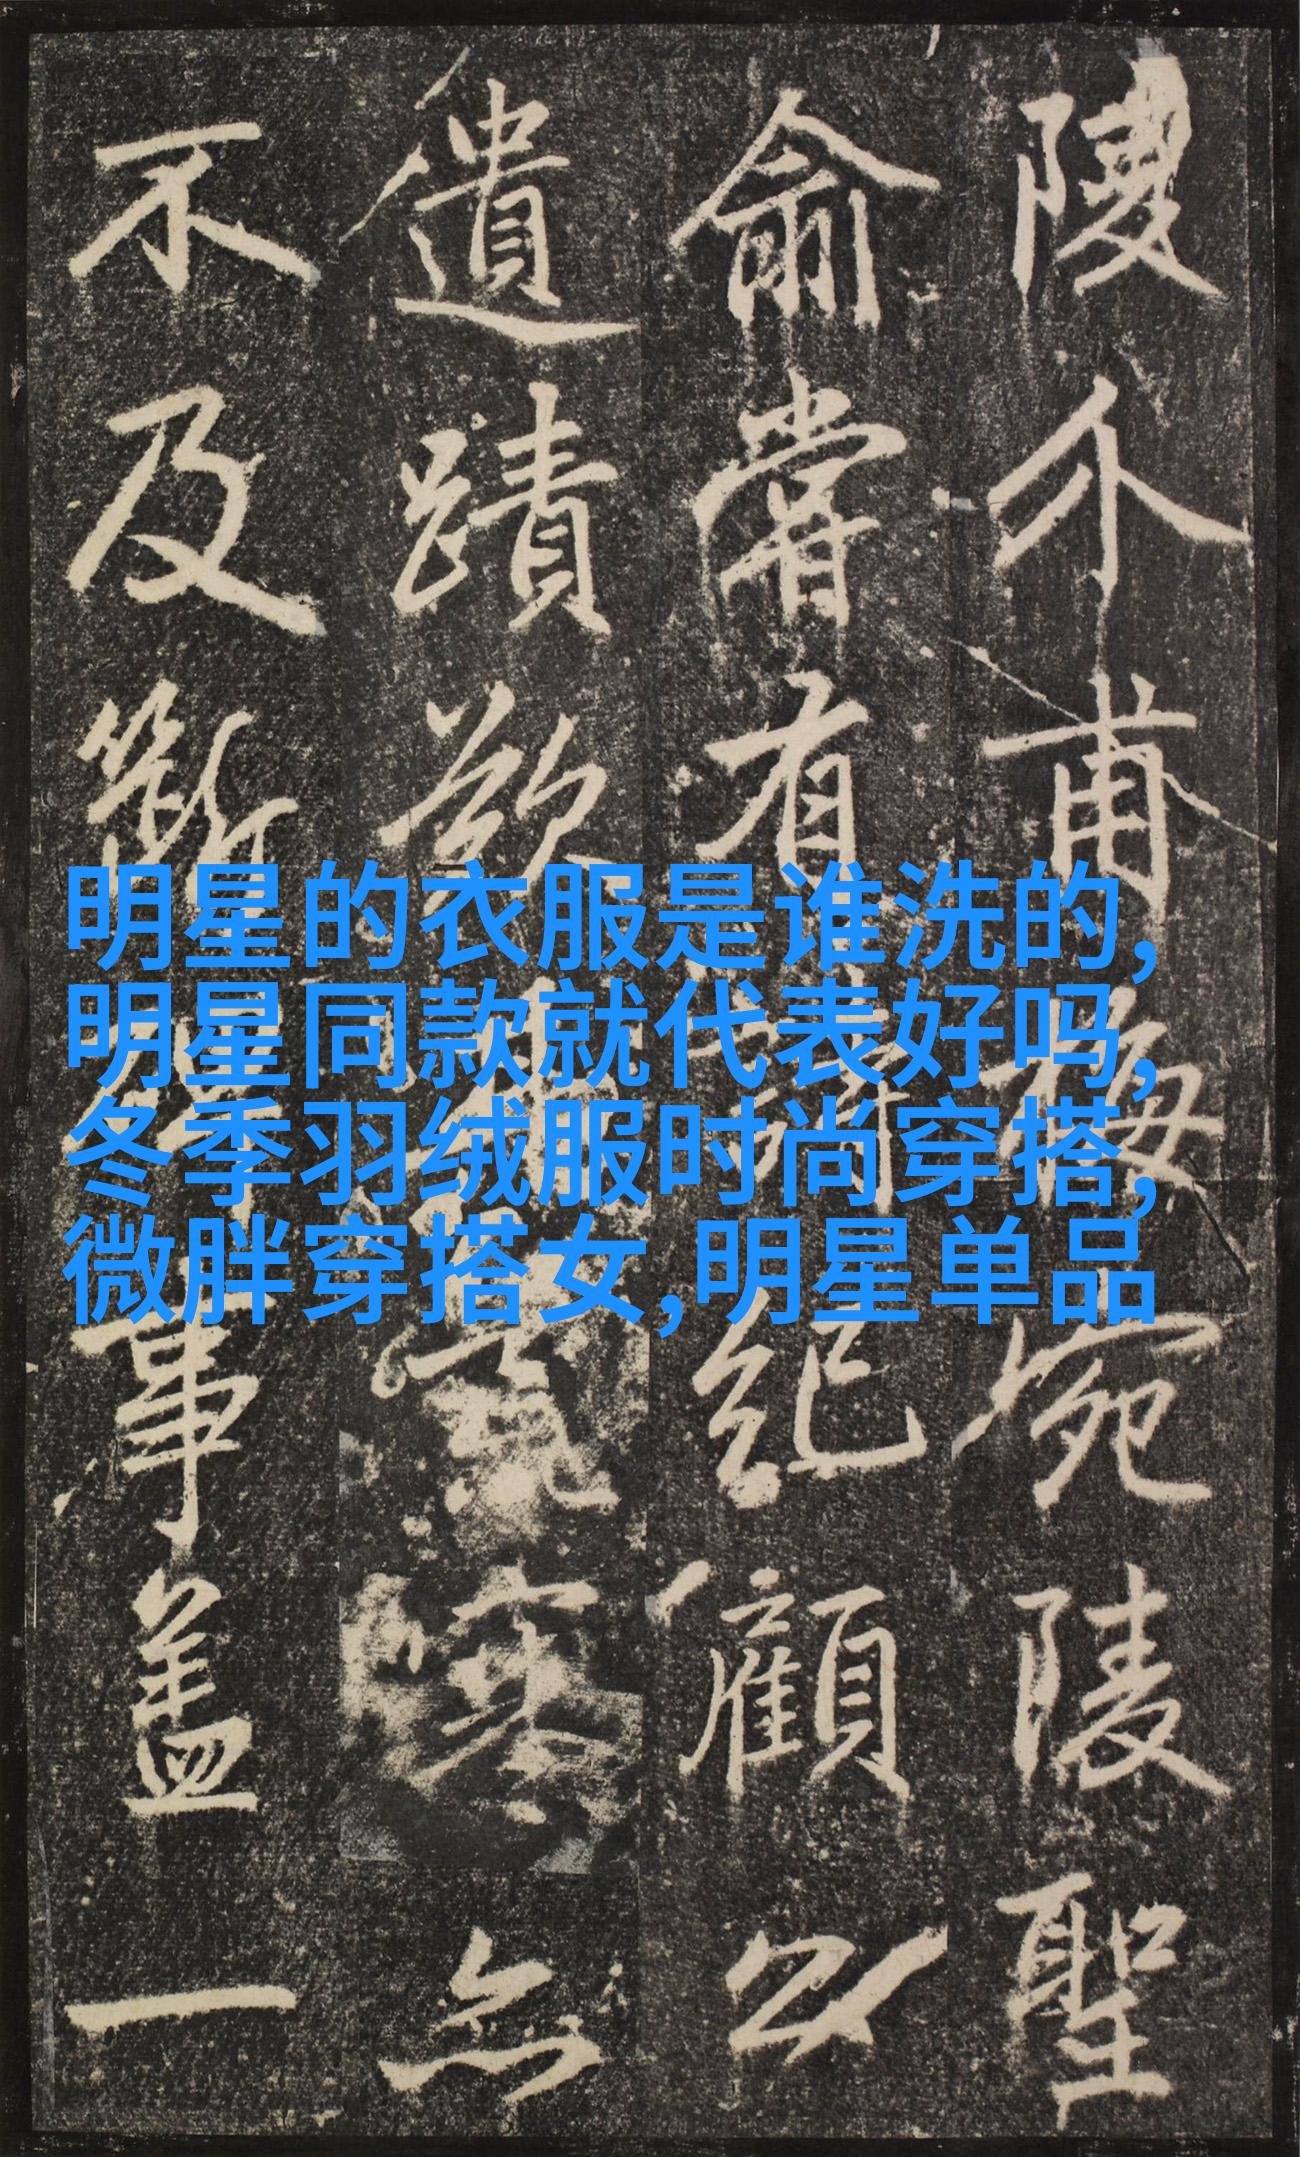 陵介甫梅宛陵聖
俞嘗有詩紀顧以
遺蹟欲
不及斷事蓋一
明星的衣服是谁洗的,
明星同款就代表好吗,
冬季羽绒服时尚穿搭,
微胖穿搭女,明星单品